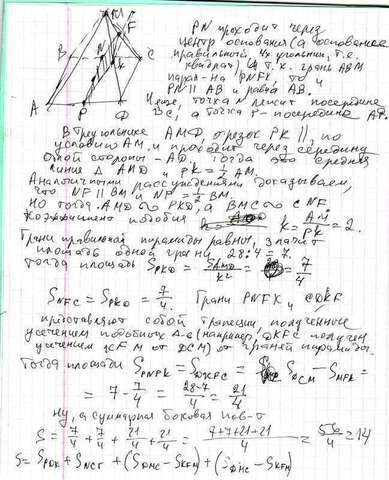 M
F
B
N
C
K
A
P
D
PN проходит через
центр основания (а основание
правильный 4х угольник, т.е.
квадрат). И т.к. грань ABM
парал-на PNFK, то и
PN || AB и равна AB.
точка N лежит посередине
BC, а точка P - посередине AD.
В треугольнике AMD отрезок PK ||, по
условию AM и проходит через середину
одной стороны - AD. Тогда это средняя
линия Δ AMD и PK = 1/2 AM.
Аналогичными рассуждениями доказываем,
что NF || BM и NF = 1/2 BM.
Но тогда AMD ∾ PKD, а BMC ∾ CNF.
Коэффициент подобия k = AM/PK = 2.
Грани правильной пирамиды равны, значит
площадь одной грани 28:4 = 7.
Тогда площадь S_PKD = S_AMD/k² = 7/4
S_NFC = S_PKD = 7/4. Грани PNFK и CDKF
представляют собой трапеции, полученные
усечением подобных Δ-в (например, DKFC получен
усечением KFM от DCM) от граней пирамиды.
Тогда площади S_PNFK = S_DKFC = S_DCM - S_MFK =
= 7 - 7/4 = 28-7/4 = 21/4
Ну, а суммарная боковая пов-ть
S = 7/4 + 7/4 + 21/4 + 21/4 = 7+7+21+21/4 = 56/4 = 14
S = S_PDK + S_NCF + (S_DMC - S_KFM) + (S_DMC - S_KFM)